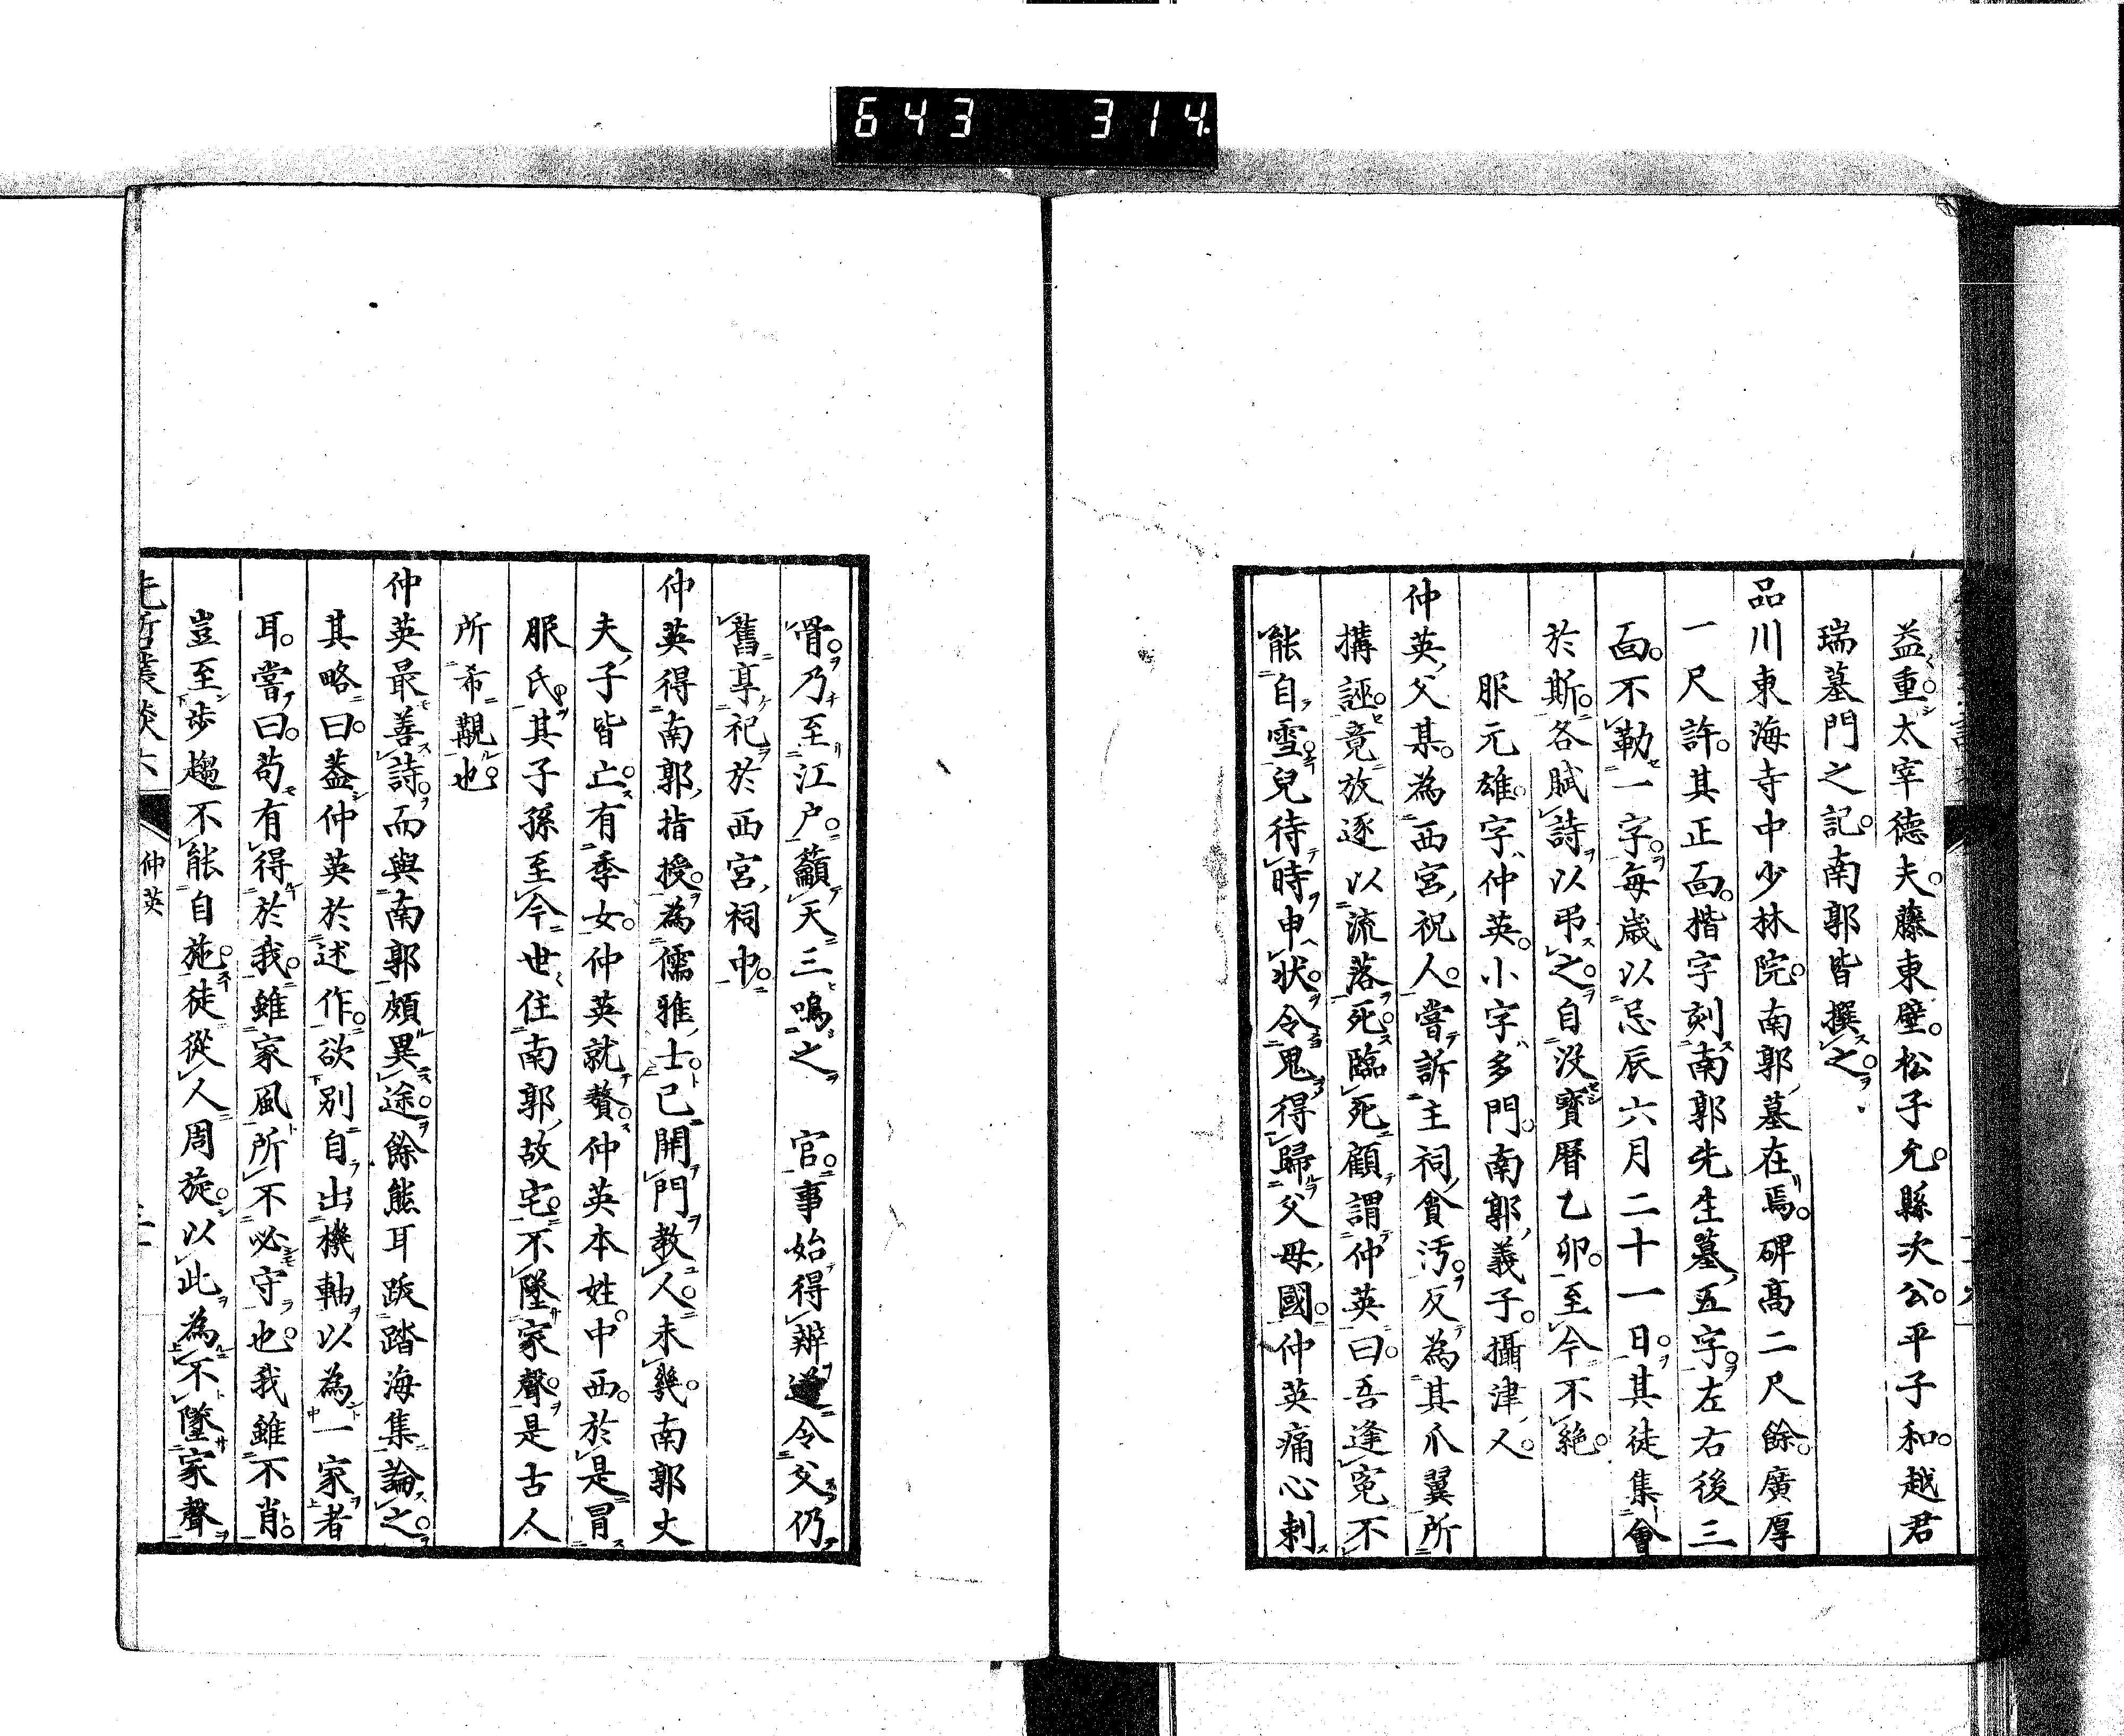 643 314
益重。太宰德夫。藤東壁。松子允。縣次公。平子和。越君
瑞墓門之記。南郭皆撰之。
品川東海寺中少林院。南郭墓在焉。碑高二尺餘。廣厚
一尺許。其正面。楷字刻南郭先生墓五字。左右後三
面。不勒一字。每歳以忌辰六月二十一日。其徒集會
於斯。各賦詩以弔之。自沒寶曆乙卯。至今不絕。
服元雄。字仲英。小字多門。南郭義子。攝津人。
仲英父某。為西宮祝人。嘗訴主祠貪汚。反為其爪翼所
搆誣。竟放逐以流落死。臨死顧謂仲英曰。吾逢冤不
能自雪。兒待時申狀。令鬼得歸父母國。仲英痛心刺
骨。乃至江戶。籲天三鳴之 官。事始得辨。遂令父仍
舊享祀於西宮祠中。
仲英得南郭指授。為儒雅士。已開門教人。未幾。南郭丈
夫子皆亡。有季女。仲英就贅。仲英本姓中西。於是冒
服氏。其子孫至今世住南郭故宅。不墜家聲。是古人
所希覯也。
仲英最善詩。而與南郭頗異途。餘熊耳跋踏海集論之。
其略曰。蓋仲英於述作。欲別自出機軸以為一家者
耳。嘗曰。苟有得於我。雖家風所不必守也。我雖不肖。
豈至步趨不能自施。徒從人周旋。以此為不墜家聲
先哲叢談六 仲英